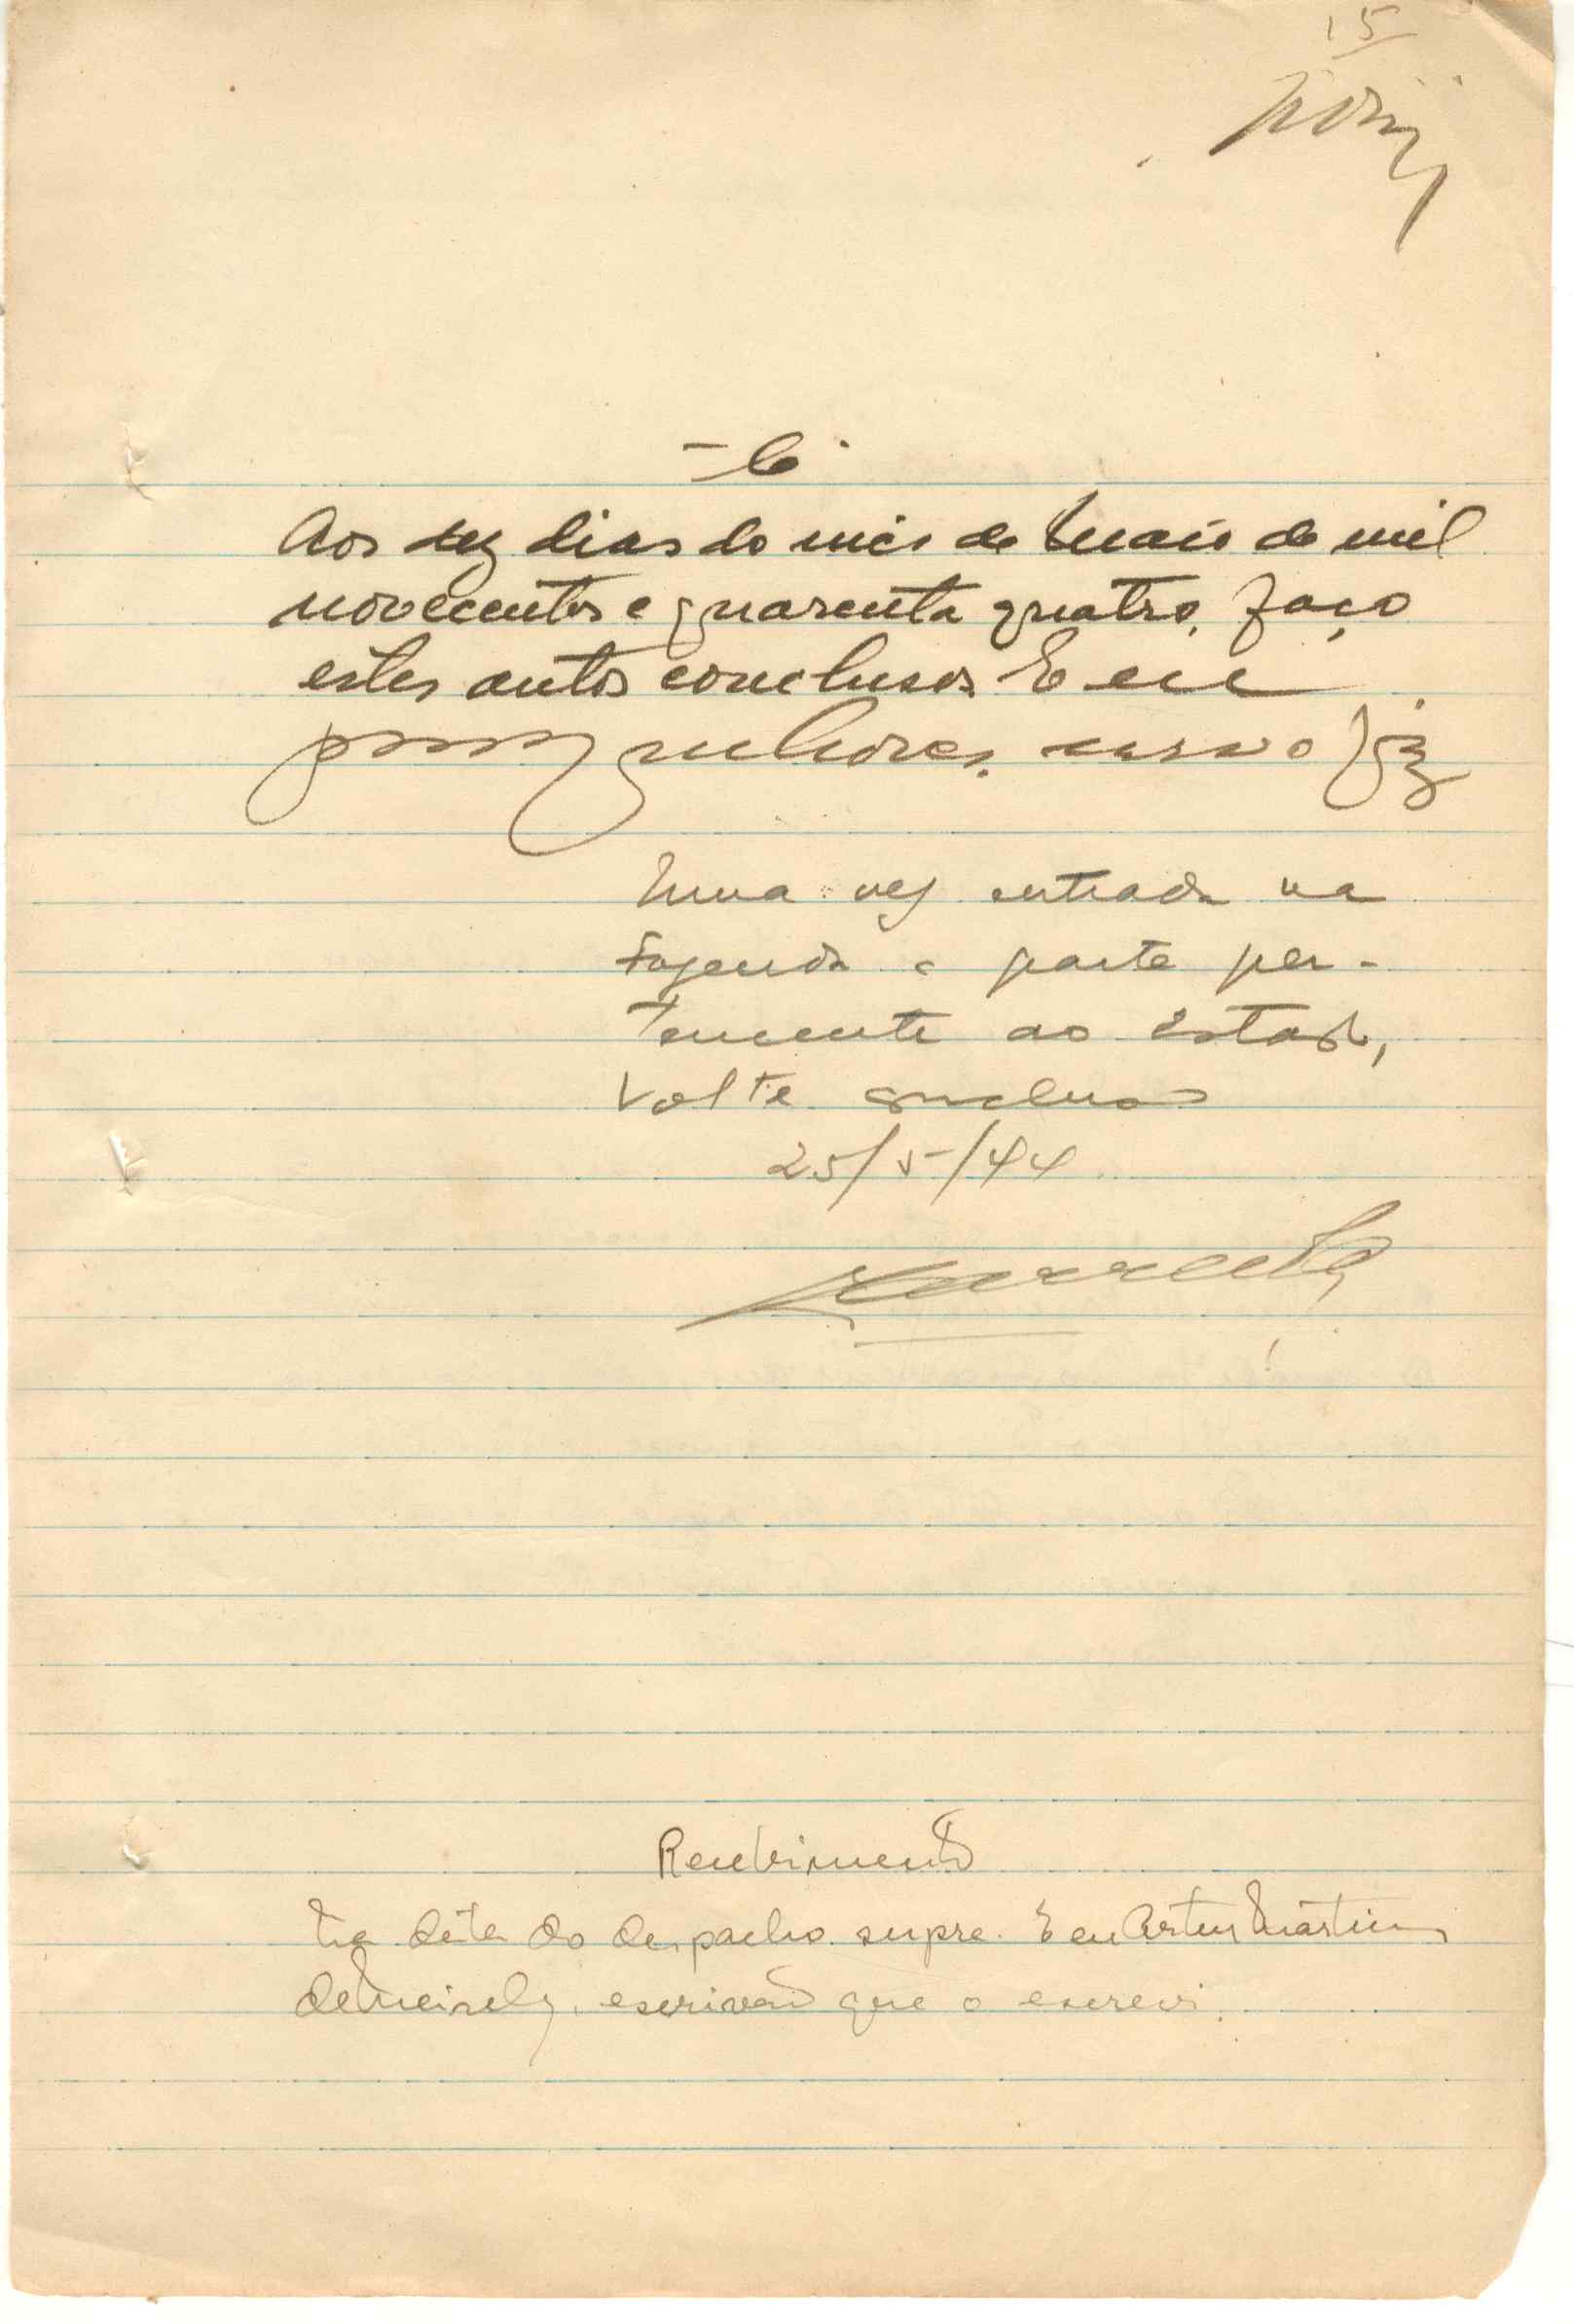 15
Aos dez dias do mês de Maio de mil
novecentos e quarenta quatro, faço
estes autos conclusos. E eu
o fiz
Uma vez entrada na
fazenda a parte per-
tencente ao Estado,
volte conclusos
25/5/44
Recebimento
Na data do despacho supra. E eu Artur Martins
de Meirely, escrivão que o escrevi.